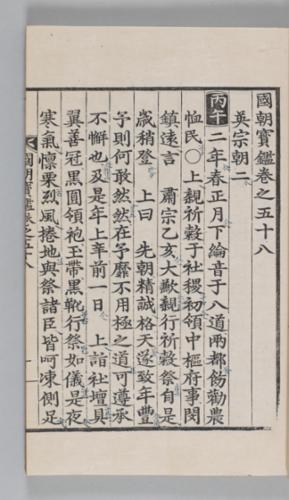 國朝寶鑑卷之五十八
英宗朝二
丙午二年春正月下綸音于八道兩都飭勸農
恤民○上親祈穀于社稷初領中樞府事閔
鎮遠言 肅宗乙亥大歉親行祈穀祭自是
歲稍登 上曰 先朝精誠格天遂致年豐
予則何敢然然在予靡不用極之道可遵承
不懈也及是年上辛前一日 上詣社壇具
翼善冠黑圓領袍玉帶黑靴行祭如儀是夜
寒氣懍栗烈風捲地與祭諸臣皆呵凍側足
國朝寶鑑卷之五十八
一